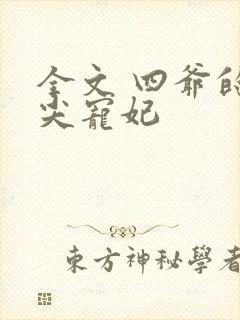 全文 四爺的
尖寵妃
東方神秘學者